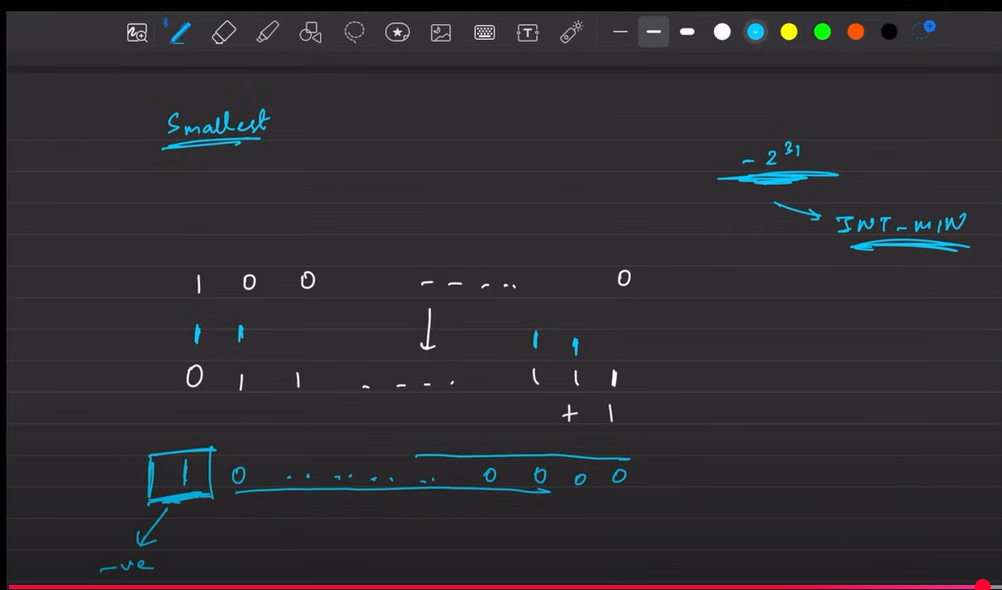 Smallest
- 2^31
INT_MIN
1 0 0 - - - .. 0
1 1 1 1
0 1 1 . - - - . 1 1 1
+ 1
1 0 . . . . . . . . 0 0 0 0
-ve